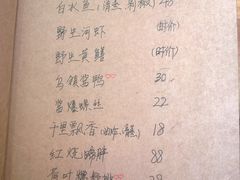 白水鱼(清蒸 剁椒) 48
野生河虾 (时价)
野生黄鳝 (时价)
乌镇酱鸭 30
酱爆螺丝 22
千里飘香 18
红烧蹄膀 88